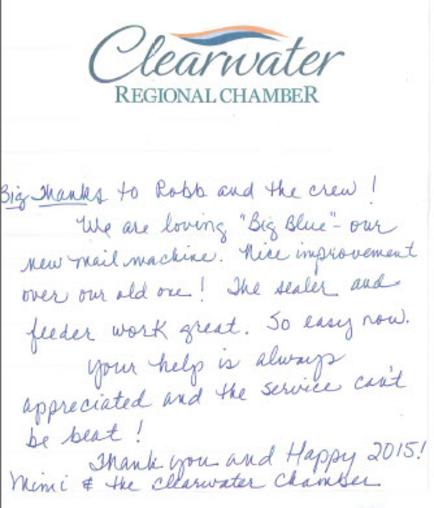 Clearwater
REGIONAL CHAMBER
Big Thanks to Robb and the crew!
We are loving "Big Blue" - our
new mail machine. Nice improvement
over our old one! The sealer and
feeder work great. So easy now.
Your help is always
appreciated and the service can't
be beat!
Thank you and Happy 2015!
Mimi & the Clearwater Chamber